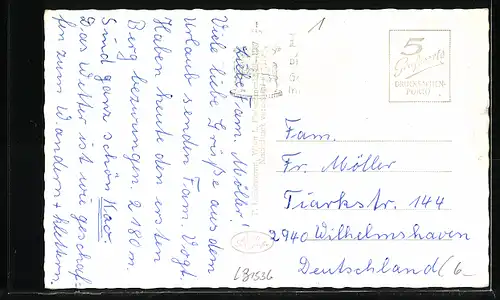 Liebe Fam. Möller!
Viele liebe Grüße aus dem
Urlaub senden Fam. Vogt.
Haben heute den ersten
Berg bezwungen. 2180 m.
Sind ganz schön k.o.
Das Wetter ist wie geschaf-
fen zum Wandern + klettern.
1
5
Grußworte
DRUCKSACHEN-
PORTO
Fam.
Fr. Möller
Tiarkstr. 144
2940 Wilhelmshaven
Deutschland (6_